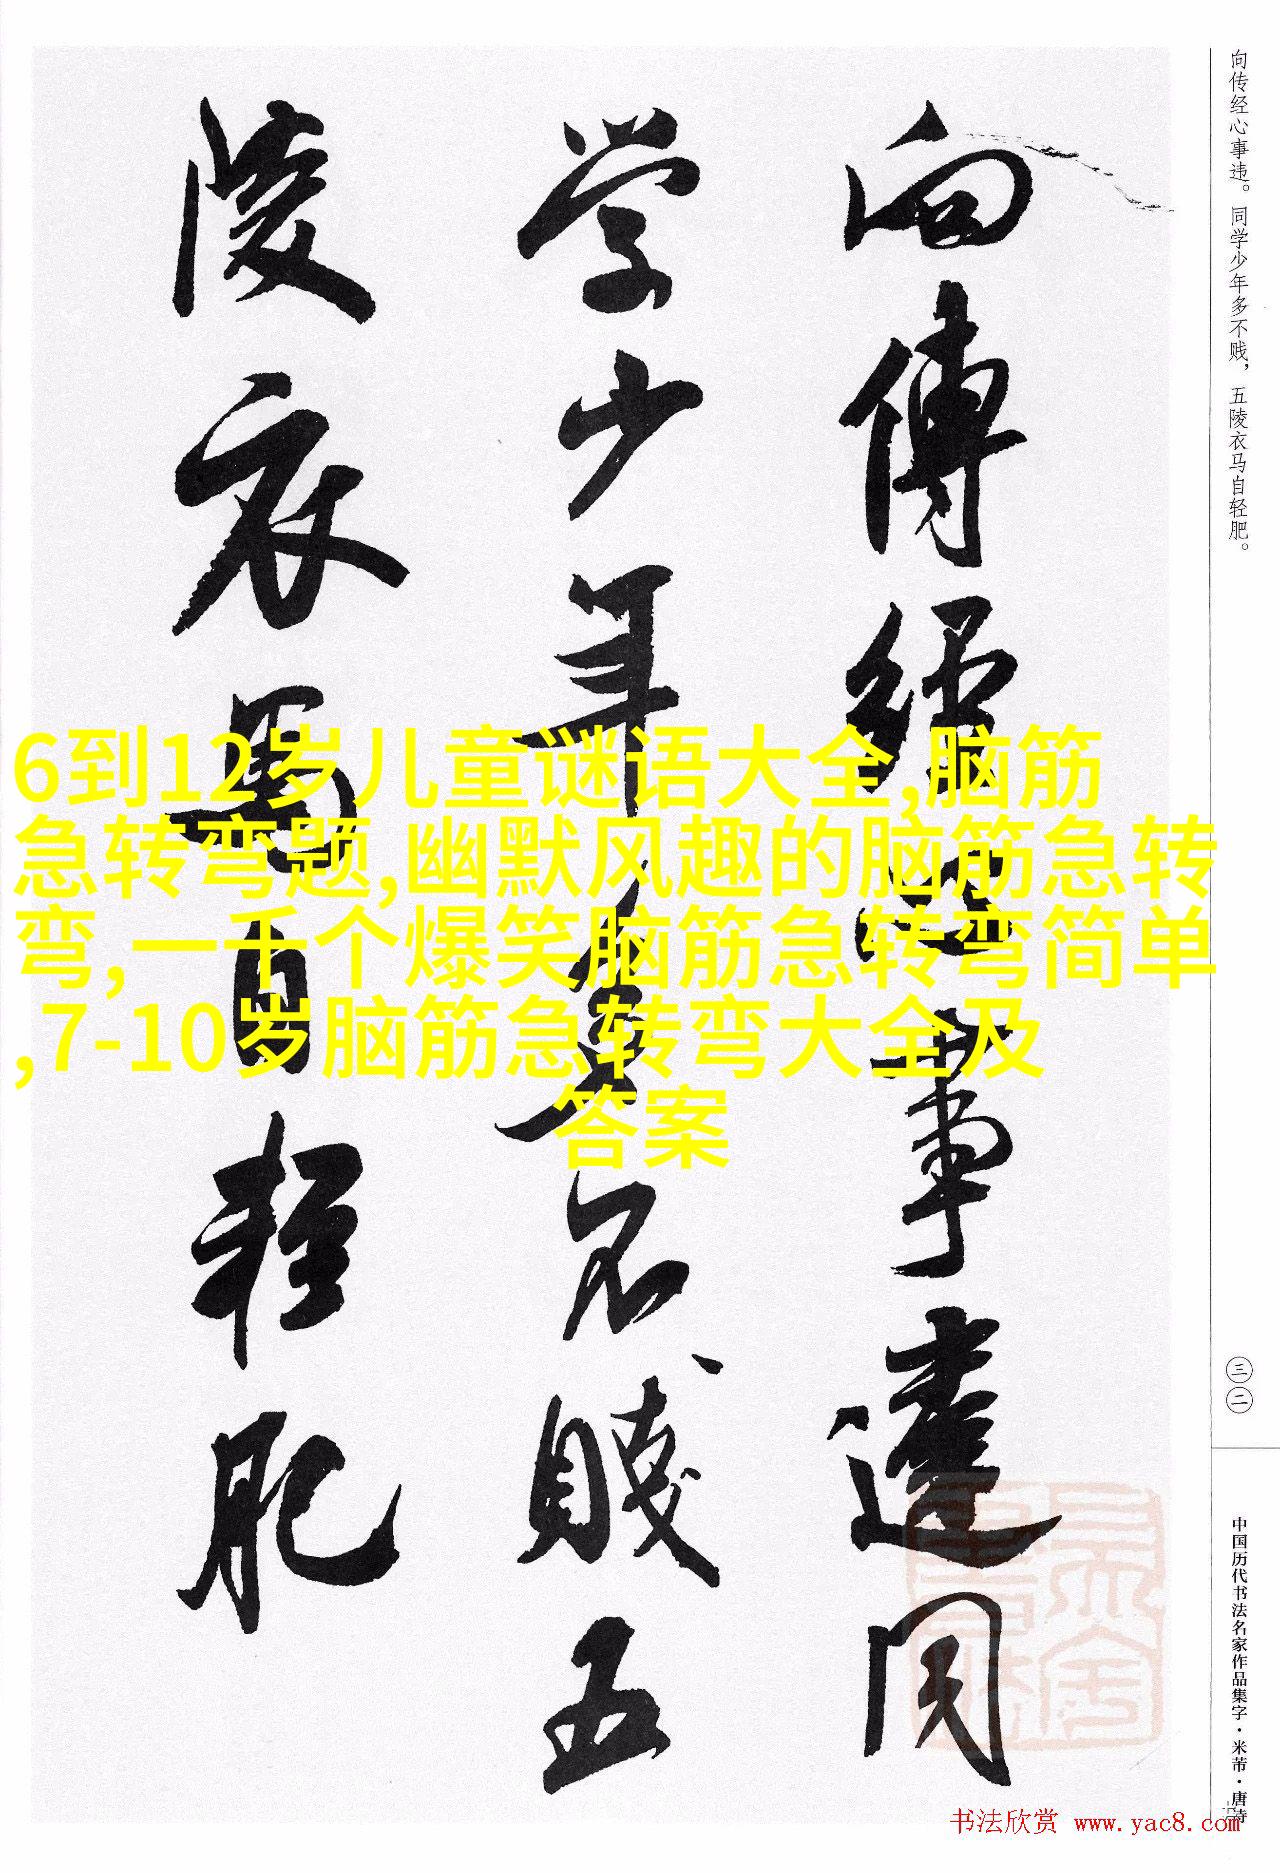 向傳經心事違同
学少年多不賤五
陵衣馬自輕肥
向传经心事违。同学少年多不贱，五陵衣马自轻肥。
三二
中国历代书法名家作品集字·米芾·唐诗
6到12岁儿童谜语大全,脑筋
急转弯题,幽默风趣的脑筋急转
弯,一千个爆笑脑筋急转弯简单
,7-10岁脑筋急转弯大全及
答案
书法欣赏 www.yac8.com